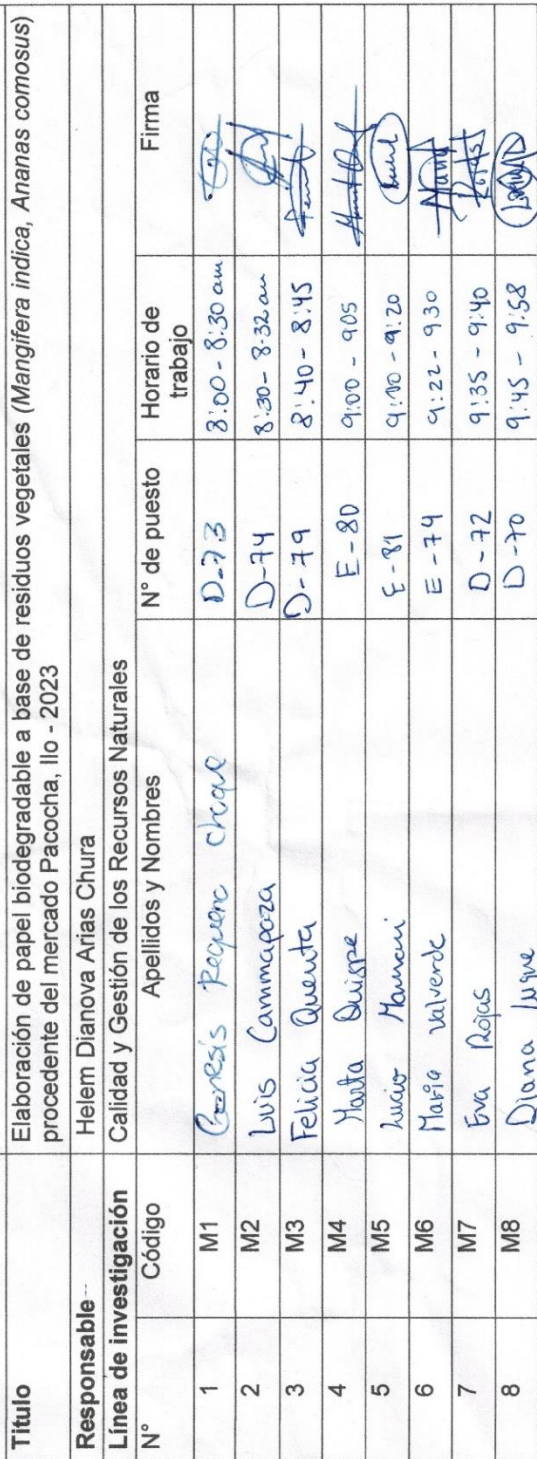 Titulo Elaboración de papel biodegradable a base de residuos vegetales (Mangifera indica, Ananas comosus)
procedente del mercado Pacocha, Ilo - 2023
Responsable Helem Dianova Arias Chura
Línea de investigación Calidad y Gestión de los Recursos Naturales
N° Código Apellidos y Nombres N° de puesto Horario de trabajo Firma
1 M1 Choque D-73 8:00 - 8:30 am
2 M2 Luis D-74 8:30 - 8:32 am
3 M3 Felicia Quenta D-79 8:40 - 8:45
4 M4 Marta Quispe E-80 9:00 - 905
5 M5 Lucio Mamani E-81 9:10 - 9:20
6 M6 Maria Valverde E-74 9:22 - 930
7 M7 Eva Rojas D-72 9:35 - 9:40
8 M8 Diana Luque D-70 9:45 - 9:58